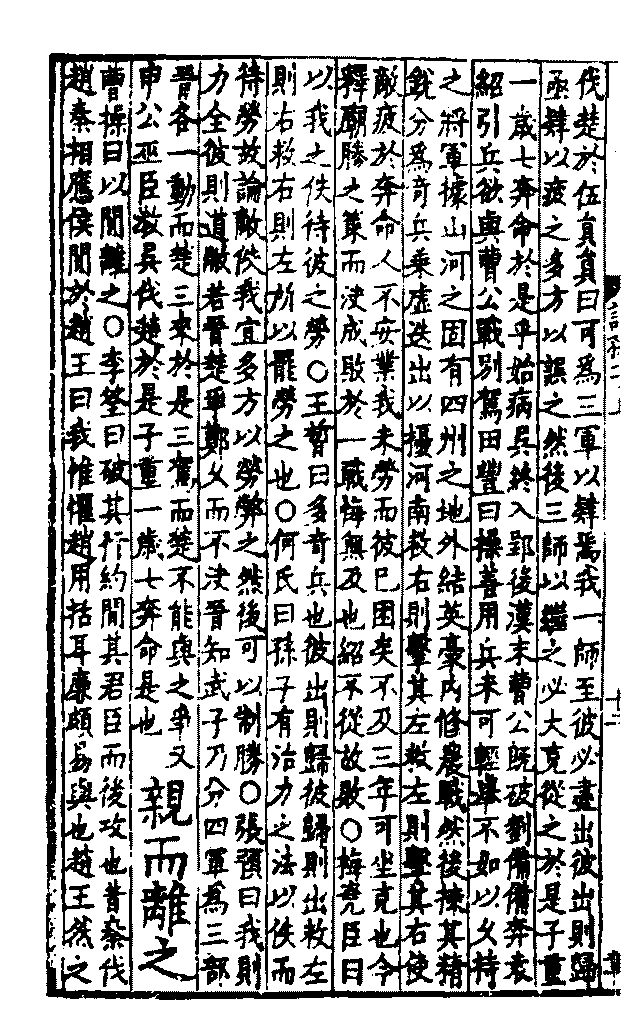 伐楚於伍員員曰可爲三軍以肄焉我一師至彼必盡出彼出則歸
亟肄以疲之多方以誤之然後三師以繼之必大克從之於是子重
一歲七奔命於是乎始病吳終入郢後漢末曹公旣破劉備備奔袁
紹引兵欲與曹公戰別駕田豐曰操善用兵未可輕舉不如以久持
之將軍據山河之固有四州之地外結英豪內修農戰然後揀其精
銳分爲奇兵乘虛迭出以擾河南救右則擊其左救左則擊其右使
敵疲於奔命人不安業我未勞而彼已困矣不及三年可坐克也今
釋廟勝之策而決成敗於一戰悔無及也紹不從故敗○梅堯臣曰
以我之佚待彼之勞○王晳曰多奇兵也彼出則歸彼歸則出救左
則右救右則左所以罷勞之也○何氏曰孫子有治力之法以佚而
待勞故論敵佚我宜多方以勞弊之然後可以制勝○張預曰我則
力全彼則道敝若晉楚爭鄭久而不決晉知武子乃分四軍爲三部
晉各一動而楚三來於是三駕而楚不能與之爭又
申公巫臣敎吳伐楚於是子重一歲七奔命是也
親而離之
曹操曰以間離之○李筌曰破其行約間其君臣而後攻也昔秦伐
趙秦相應侯間於趙王曰我惟懼趙用括耳廉頗易與也趙王然之